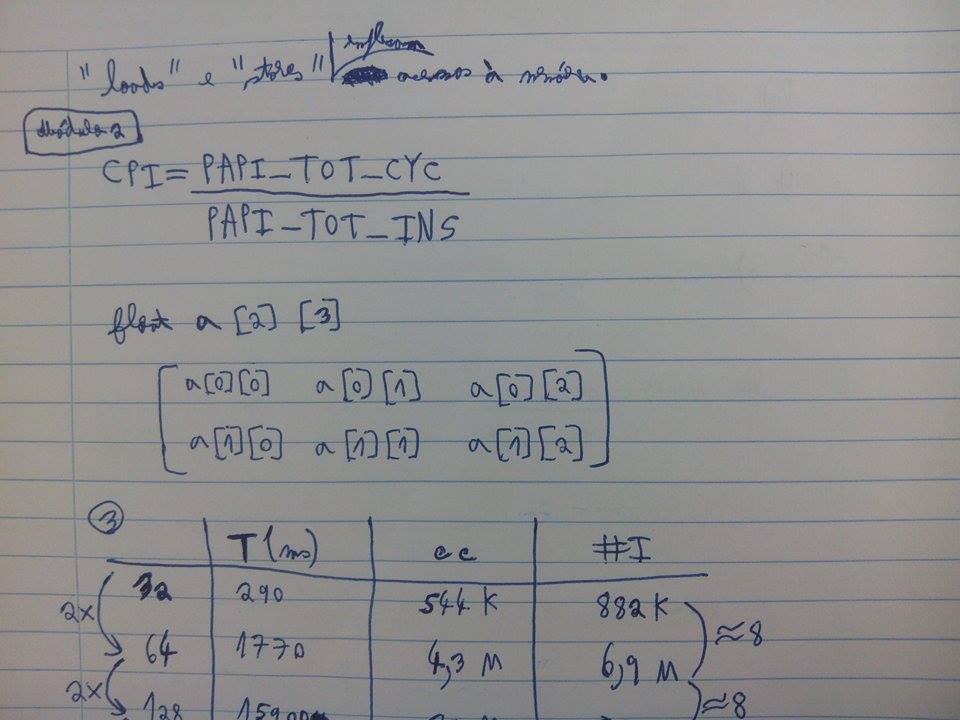 "loads" e "stores" implicam acessos à memória.
Módulo 2
CPI = PAPI_TOT_CYC
PAPI_TOT_INS
float a [2] [3]
a[0][0] a[0][1] a[0][2]
a[1][0] a[1][1] a[1][2]
3
T(ms) cc #I
32 290 544 K 882 K
2x ≈8
64 1770 4,3 M 6,9 M
2x ≈8
128